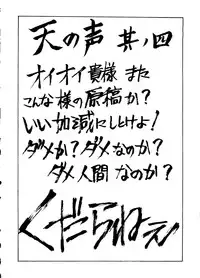 天の声 其ノ四
オイオイ貴様 また
こんな様の原稿か?
いい加減にしとけよ!
ダメか?ダメなのか?
ダメ人間なのか?
くだらねぇ